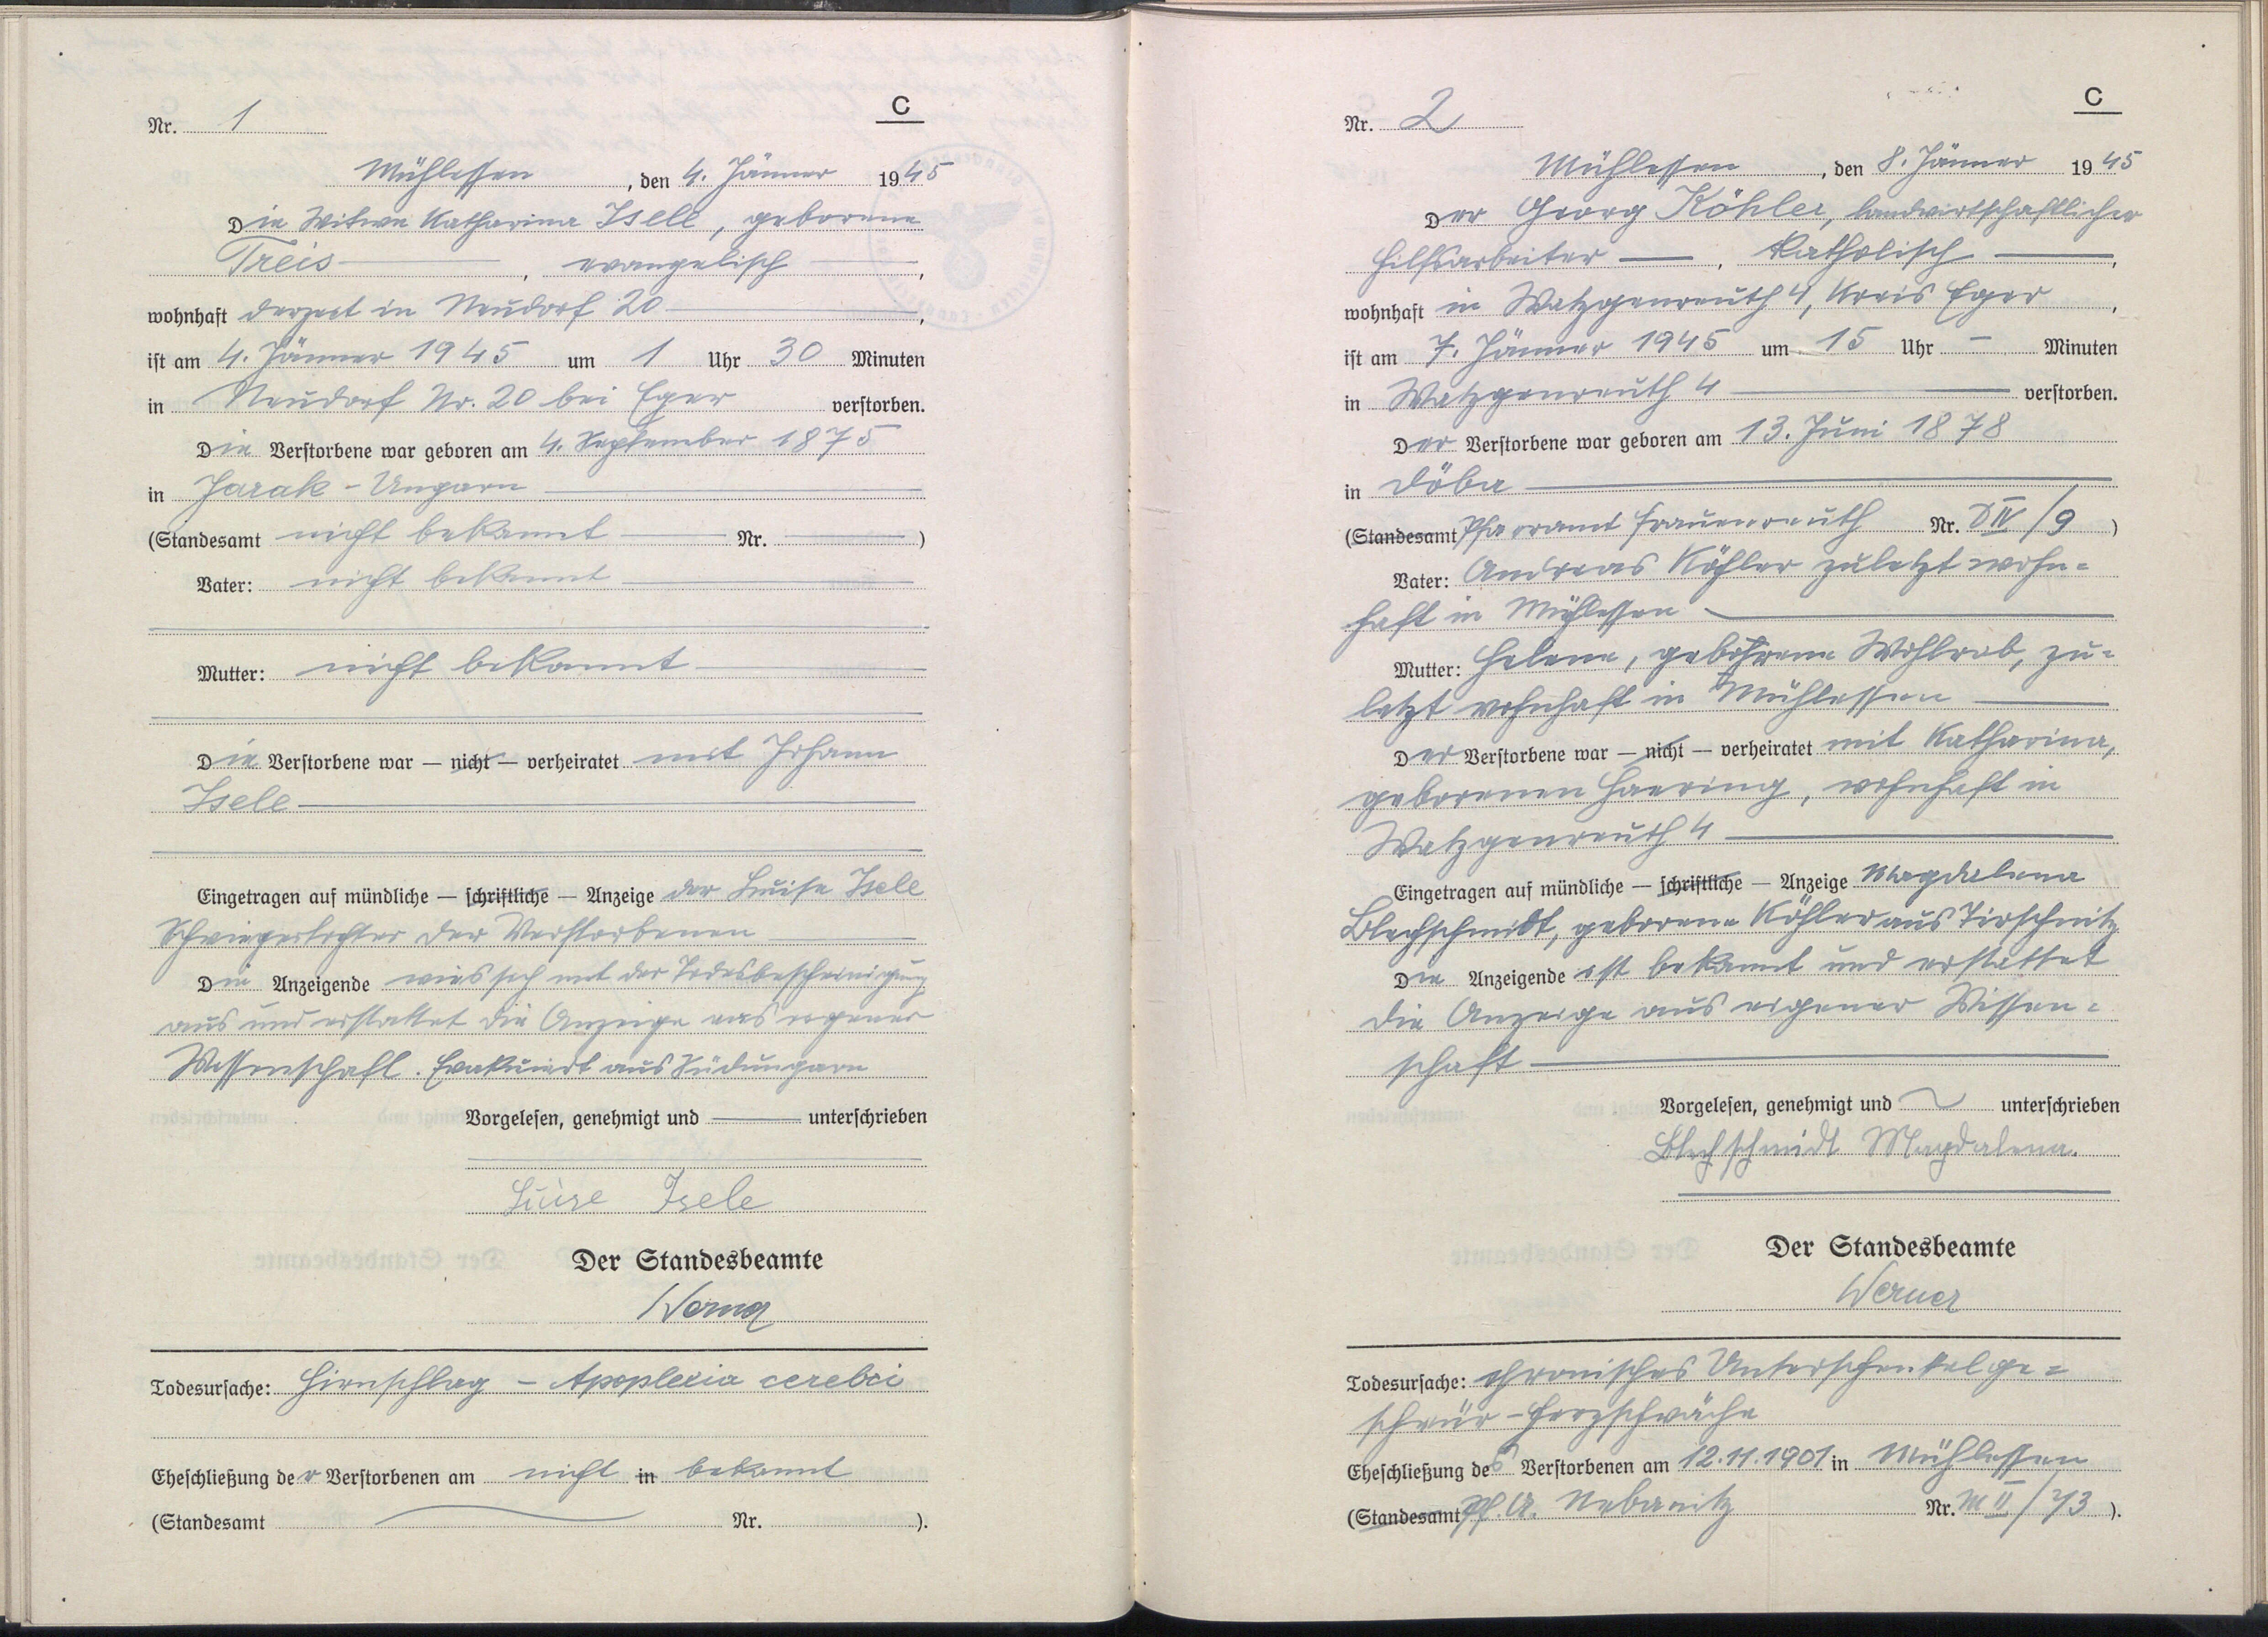 C
Nr. 1
Mühlessen, den 4. Jänner 1945
Die Witwe Katharina Isele, geborene
Treis, evangelisch,
wohnhaft derzeit in Neudorf 20,
ist am 4. Jänner 1945 um 1 Uhr 30 Minuten
in Neudorf Nr. 20 bei Eger verstorben.
Die Verstorbene war geboren am 4. September 1875
in Jarak - Ungarn
(Standesamt nicht bekannt Nr. )
Vater: nicht bekannt
Mutter: nicht bekannt
Die Verstorbene war — nicht — verheiratet mit Johann
Isele
Eingetragen auf mündliche — schriftliche — Anzeige der Luise Isele
Schwiegertochter der Verstorbenen
Die Anzeigende wies sich mit der Todesbescheinigung
aus und erstattet die Anzeige aus eigener
Wissenschaft. Evakuiert aus Südungarn
Vorgelesen, genehmigt und unterschrieben
Luise Isele
Der Standesbeamte
Werner
Todesursache: Hirnschlag - Apoplexia cerebri
Eheschließung der Verstorbenen am nicht in bekannt
(Standesamt Nr. ).
C
Nr. 2
Mühlessen, den 8. Jänner 1945
Der Georg Köhler, landwirtschaftlicher
Hilfsarbeiter, katholisch,
wohnhaft in Watzgenreuth 4, Kreis Eger,
ist am 7. Jänner 1945 um 15 Uhr - Minuten
in Watzgenreuth 4 verstorben.
Der Verstorbene war geboren am 13. Juni 1878
in Döba
(Standesamt Pfarramt Frauenreuth Nr. D IV/9 )
Vater: Andreas Köhler zuletzt wohn=
haft in Mühlessen
Mutter: Helene, geborene Wohlrab, zu=
letzt wohnhaft in Mühlessen
Der Verstorbene war — nicht — verheiratet mit Katharina,
geborenen Haering, wohnhaft in
Watzgenreuth 4
Eingetragen auf mündliche — schriftliche — Anzeige Magdalena
Blechschmidt, geborene Köhler aus Tirschnitz
Die Anzeigende ist bekannt und erstattet
die Anzeige aus eigener Wissen=
schaft
Vorgelesen, genehmigt und unterschrieben
Blechschmidt Magdalena.
Der Standesbeamte
Werner
Todesursache: chronisches Unterschenkelge=
schwür - Herzschwäche
Eheschließung des Verstorbenen am 12.11.1901 in Mühlessen
(Standesamt Pf. A. Nebanitz Nr. M II/73 ).